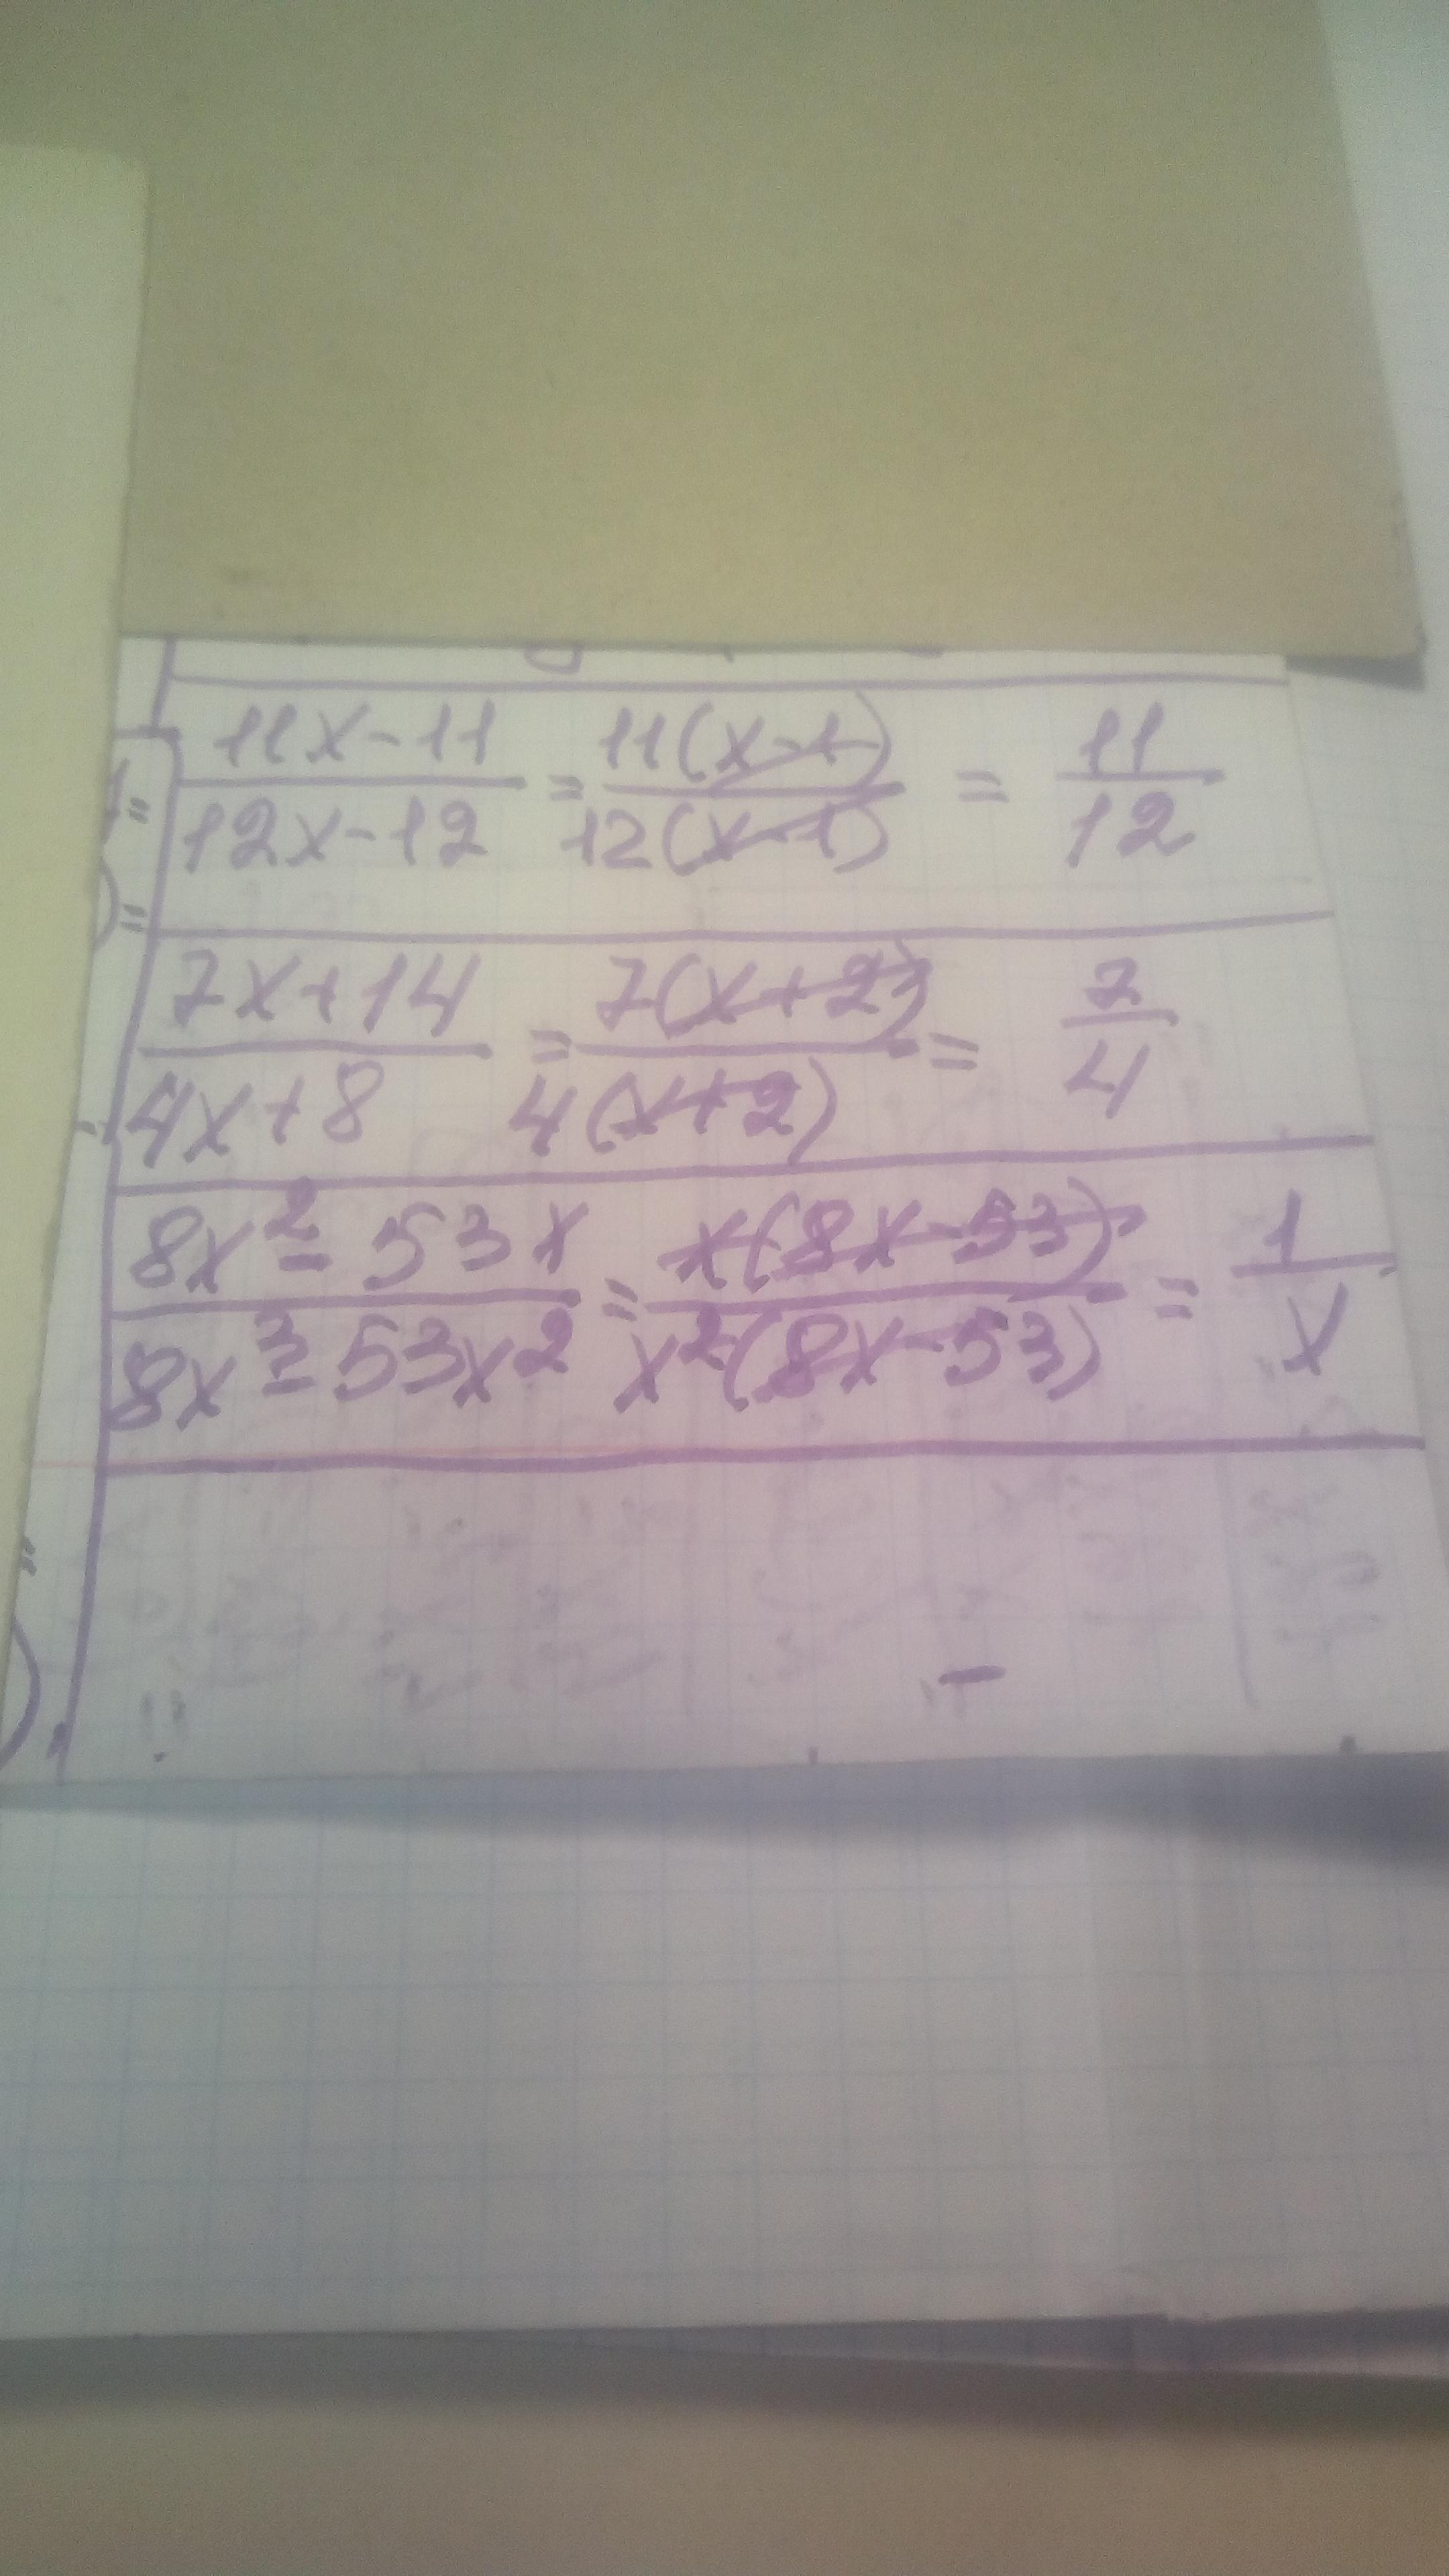 (11x-11)/(12x-12) = 11(x-1)/12(x-1) = 11/12
(7x+14)/(4x+8) = 7(x+2)/4(x+2) = 7/4
(8x²-53x)/(8x³-53x²) = x(8x-53)/x²(8x-53) = 1/x